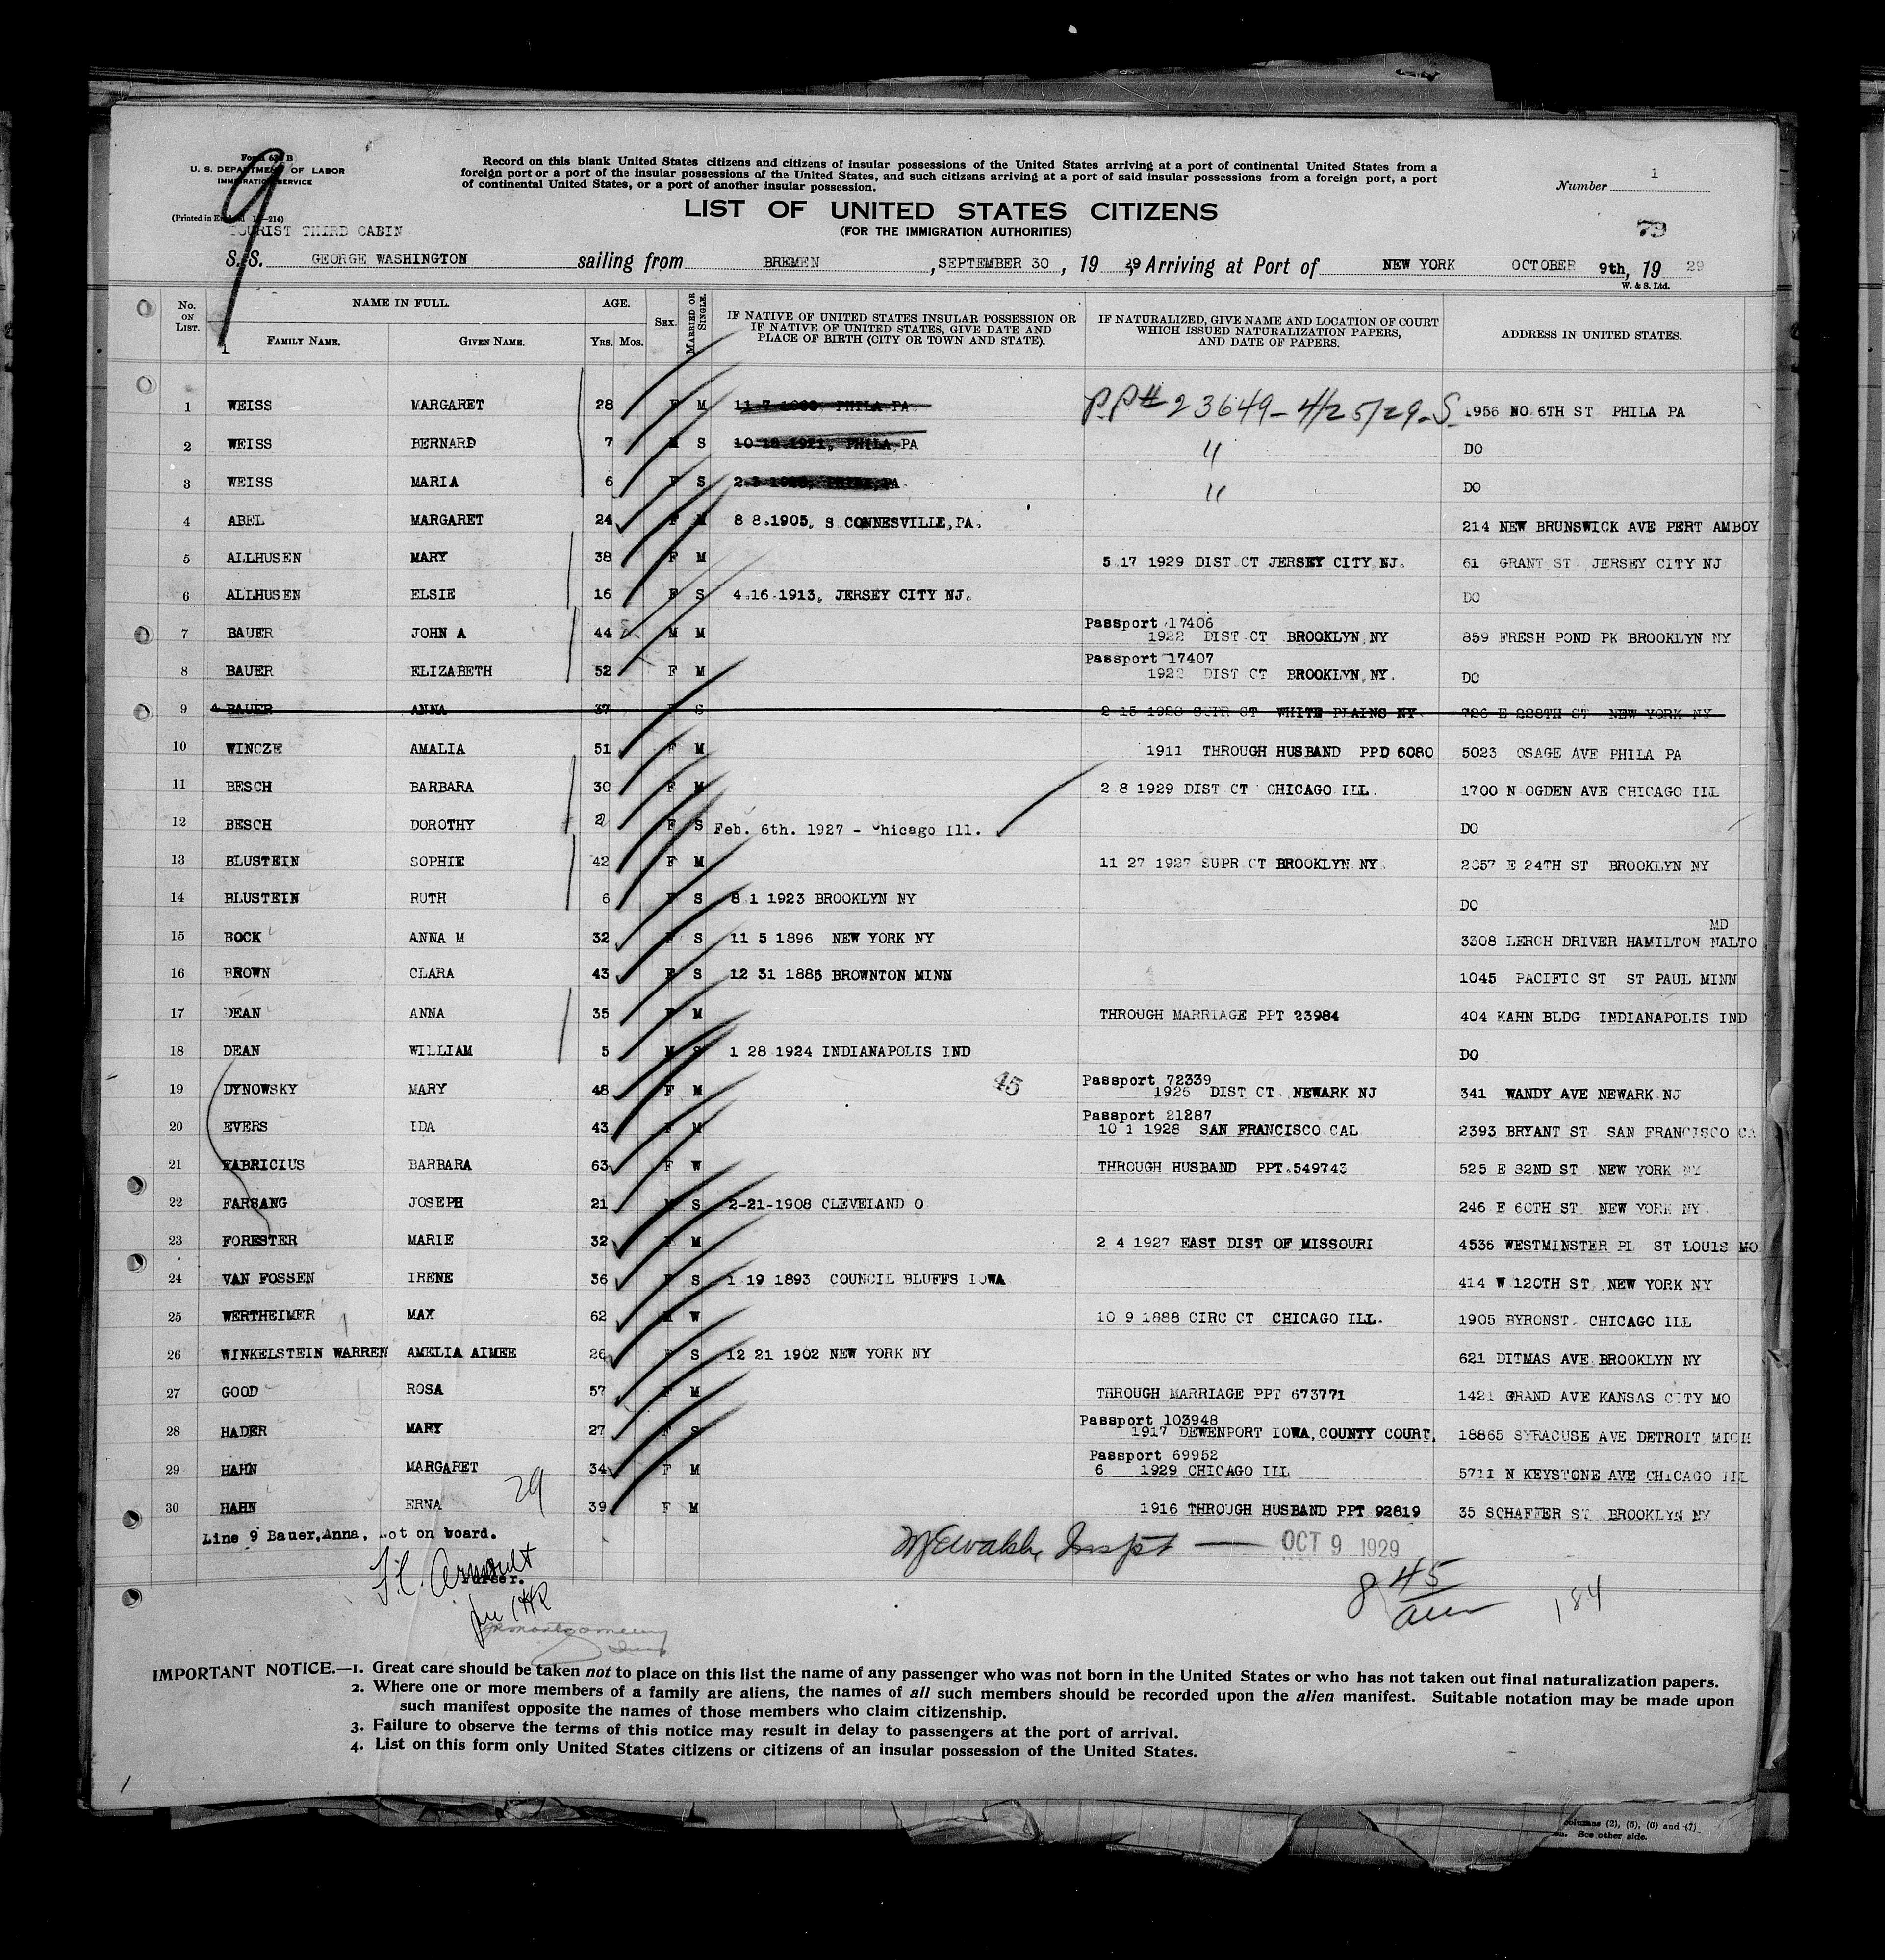 Form 630 B
U. S. DEPARTMENT OF LABOR
IMMIGRATION SERVICE
(Printed in England
TOURIST THIRD CABIN
9
Record on this blank United States citizens and citizens of insular possessions of the United States arriving at a port of continental United States from a
foreign port or a port of the insular possessions of the United States, and such citizens arriving at a port of said insular possessions from a foreign port, a port
of continental United States, or a port of another insular possession.
Number 1
LIST OF UNITED STATES CITIZENS
(FOR THE IMMIGRATION AUTHORITIES)
73
S.S. GEORGE WASHINGTON sailing from BREMEN, SEPTEMBER 30, 19 29 Arriving at Port of NEW YORK OCTOBER 9th, 19 29
W. & S. Ltd.
No. ON LIST. NAME IN FULL. FAMILY NAME. GIVEN NAME. AGE. Yrs. Mos. SEX. MARRIED OR SINGLE. IF NATIVE OF UNITED STATES INSULAR POSSESSION OR IF NATIVE OF UNITED STATES, GIVE DATE AND PLACE OF BIRTH (CITY OR TOWN AND STATE). IF NATURALIZED, GIVE NAME AND LOCATION OF COURT WHICH ISSUED NATURALIZATION PAPERS, AND DATE OF PAPERS. ADDRESS IN UNITED STATES.
1 WEISS MARGARET 28 F M PHILA PA P.P.# 23649 - 4/25/29 - S. 1956 NO 6TH ST PHILA PA
2 WEISS BERNARD 7 M S 10 18 1921, PHILA, PA " DO
3 WEISS MARIA 6 F S PA " DO
4 ABEL MARGARET 24 F M 8 8.1905, S CONNESVILLE, PA. 214 NEW BRUNSWICK AVE PERT AMBOY
5 ALLHUSEN MARY 38 F M 5 17 1929 DIST CT JERSEY CITY NJ. 61 GRANT ST JERSEY CITY NJ
6 ALLHUSEN ELSIE 16 F S 4.16.1913, JERSEY CITY NJ. DO
7 BAUER JOHN A 44 M M Passport 17406 1922 DIST CT BROOKLYN NY 859 FRESH POND PK BROOKLYN NY
8 BAUER ELIZABETH 52 F M Passport 17407 1922 DIST CT BROOKLYN, NY. DO
9 BAUER ANNA 37 F S 2 15 1928 SUPR CT WHITE PLAINS NY. 726 E 228TH ST NEW YORK NY
10 WINCZE AMALIA 51 F M 1911 THROUGH HUSBAND PPD 6080 5023 OSAGE AVE PHILA PA
11 BESCH BARBARA 30 F M 2 8 1929 DIST CT CHICAGO ILL. 1700 N OGDEN AVE CHICAGO ILL
12 BESCH DOROTHY 2 F S Feb. 6th. 1927 - Chicago Ill. DO
13 BLUSTEIN SOPHIE 42 F M 11 27 1927 SUPR CT BROOKLYN NY. 2057 E 24TH ST BROOKLYN NY
14 BLUSTEIN RUTH 6 F S 8 1 1923 BROOKLYN NY DO
15 BOCK ANNA M 32 F S 11 5 1896 NEW YORK NY 3308 LERCH DRIVER HAMILTON NALTO MD
16 BROWN CLARA 43 F S 12 31 1885 BROWNTON MINN 1045 PACIFIC ST ST PAUL MINN
17 DEAN ANNA 35 F M THROUGH MARRIAGE PPT 23984 404 KAHN BLDG INDIANAPOLIS IND
18 DEAN WILLIAM 5 M S 1 28 1924 INDIANAPOLIS IND DO
19 DYNOWSKY MARY 48 F M 45 Passport 72339 1925 DIST CT. NEWARK NJ 341 WANDY AVE NEWARK NJ
20 EVERS IDA 43 F M Passport 21287 10 1 1928 SAN FRANCISCO CAL 2393 BRYANT ST SAN FRANCISCO CA
21 FABRICIUS BARBARA 63 F W THROUGH HUSBAND PPT.549743 525 E 82ND ST NEW YORK NY
22 FARSANG JOSEPH 21 M S 2-21-1908 CLEVELAND O 246 E 60TH ST NEW YORK NY
23 FORESTER MARIE 32 F M 2 4 1927 EAST DIST OF MISSOURI 4536 WESTMINSTER PL ST LOUIS MO
24 VAN FOSSEN IRENE 36 F S 1 19 1893 COUNCIL BLUFFS IOWA 414 W 120TH ST NEW YORK NY
25 WERTHEIMER MAX 62 M W 10 9 1888 CIRC CT CHICAGO ILL. 1905 BYRONST. CHICAGO ILL
26 WINKELSTEIN WARREN AMELIA AIMEE 26 F S 12 21 1902 NEW YORK NY 621 DITMAS AVE BROOKLYN NY
27 GOOD ROSA 57 F M THROUGH MARRIAGE PPT 673771 1421 GRAND AVE KANSAS CITY MO
28 HADER MARY 27 F S Passport 103948 1917 DEWENPORT IOWA, COUNTY COURT. 18865 SYRACUSE AVE DETROIT MICH
29 HAHN MARGARET 34 F M Passport 69952 6 1929 CHICAGO ILL 5711 N KEYSTONE AVE CHICAGO ILL
30 HAHN ERNA 29 39 F M 1916 THROUGH HUSBAND PPT 92819 35 SCHAFFER ST BROOKLYN NY
Line 9 Bauer, Anna, not on board.
Purser.
OCT 9 1929
8 45
184
IMPORTANT NOTICE.—1. Great care should be taken not to place on this list the name of any passenger who was not born in the United States or who has not taken out final naturalization papers.
2. Where one or more members of a family are aliens, the names of all such members should be recorded upon the alien manifest. Suitable notation may be made upon
such manifest opposite the names of those members who claim citizenship.
3. Failure to observe the terms of this notice may result in delay to passengers at the port of arrival.
4. List on this form only United States citizens or citizens of an insular possession of the United States.
columns (2), (5), (6) and (7)
See other side.